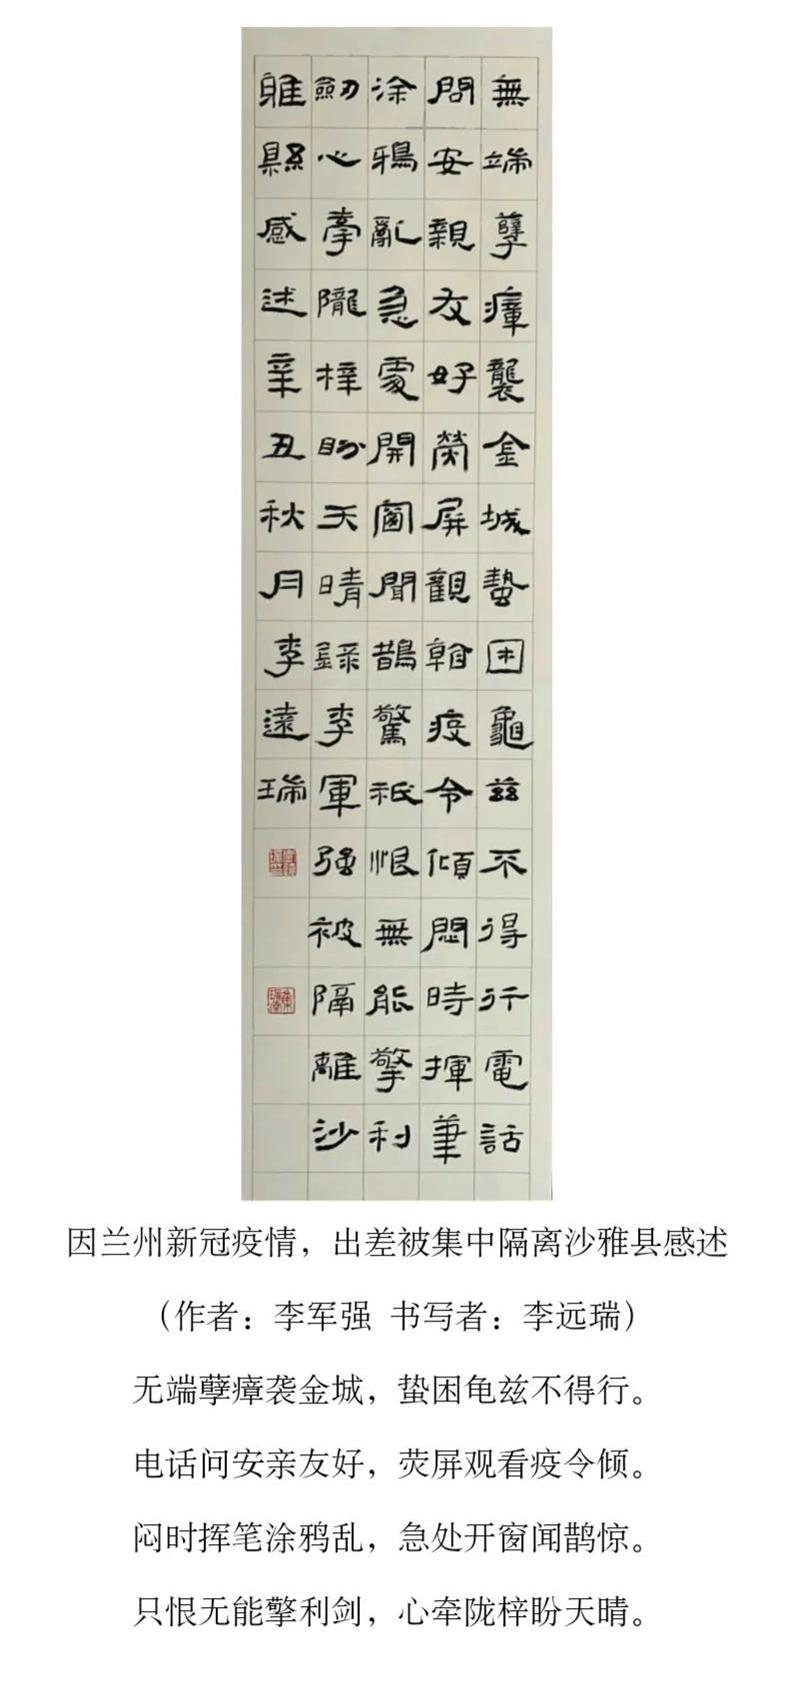 無端孽瘴襲金城蟄困龜兹不得行電話
問安親友好熒屏觀看疫令傾悶時揮筆
涂鴉亂急處開窗聞鵲驚祇恨無能擎利
劒心牽隴梓盼天晴錄李軍强被隔離沙
雅縣感述辛丑秋月李遠瑞
因兰州新冠疫情，出差被集中隔离沙雅县感述
（作者：李军强 书写者：李远瑞）
无端孽瘴袭金城，蛰困龟兹不得行。
电话问安亲友好，荧屏观看疫令倾。
闷时挥笔涂鸦乱，急处开窗闻鹊惊。
只恨无能擎利剑，心牵陇梓盼天晴。